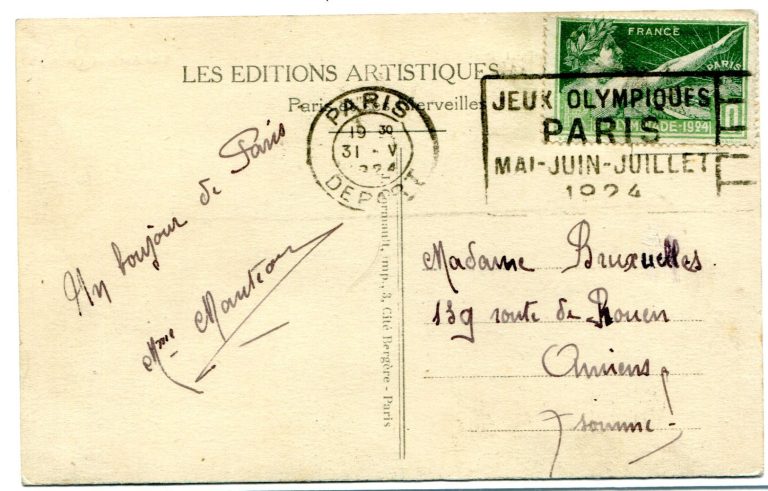 LES EDITIONS ARTISTIQUES
Paris et ses Merveilles
FRANCE
PARIS
10
OLYMPIADE-1924
PARIS
19 30
31 - V
1924
DEPART
JEUX OLYMPIQUES
PARIS
MAI-JUIN-JUILLET
1924
Un bonjour de Paris
Mme
Madame Bruxuelles
139 route de Rouen
Amiens
somme
Cormault, imp., 3, Cité Bergère - Paris